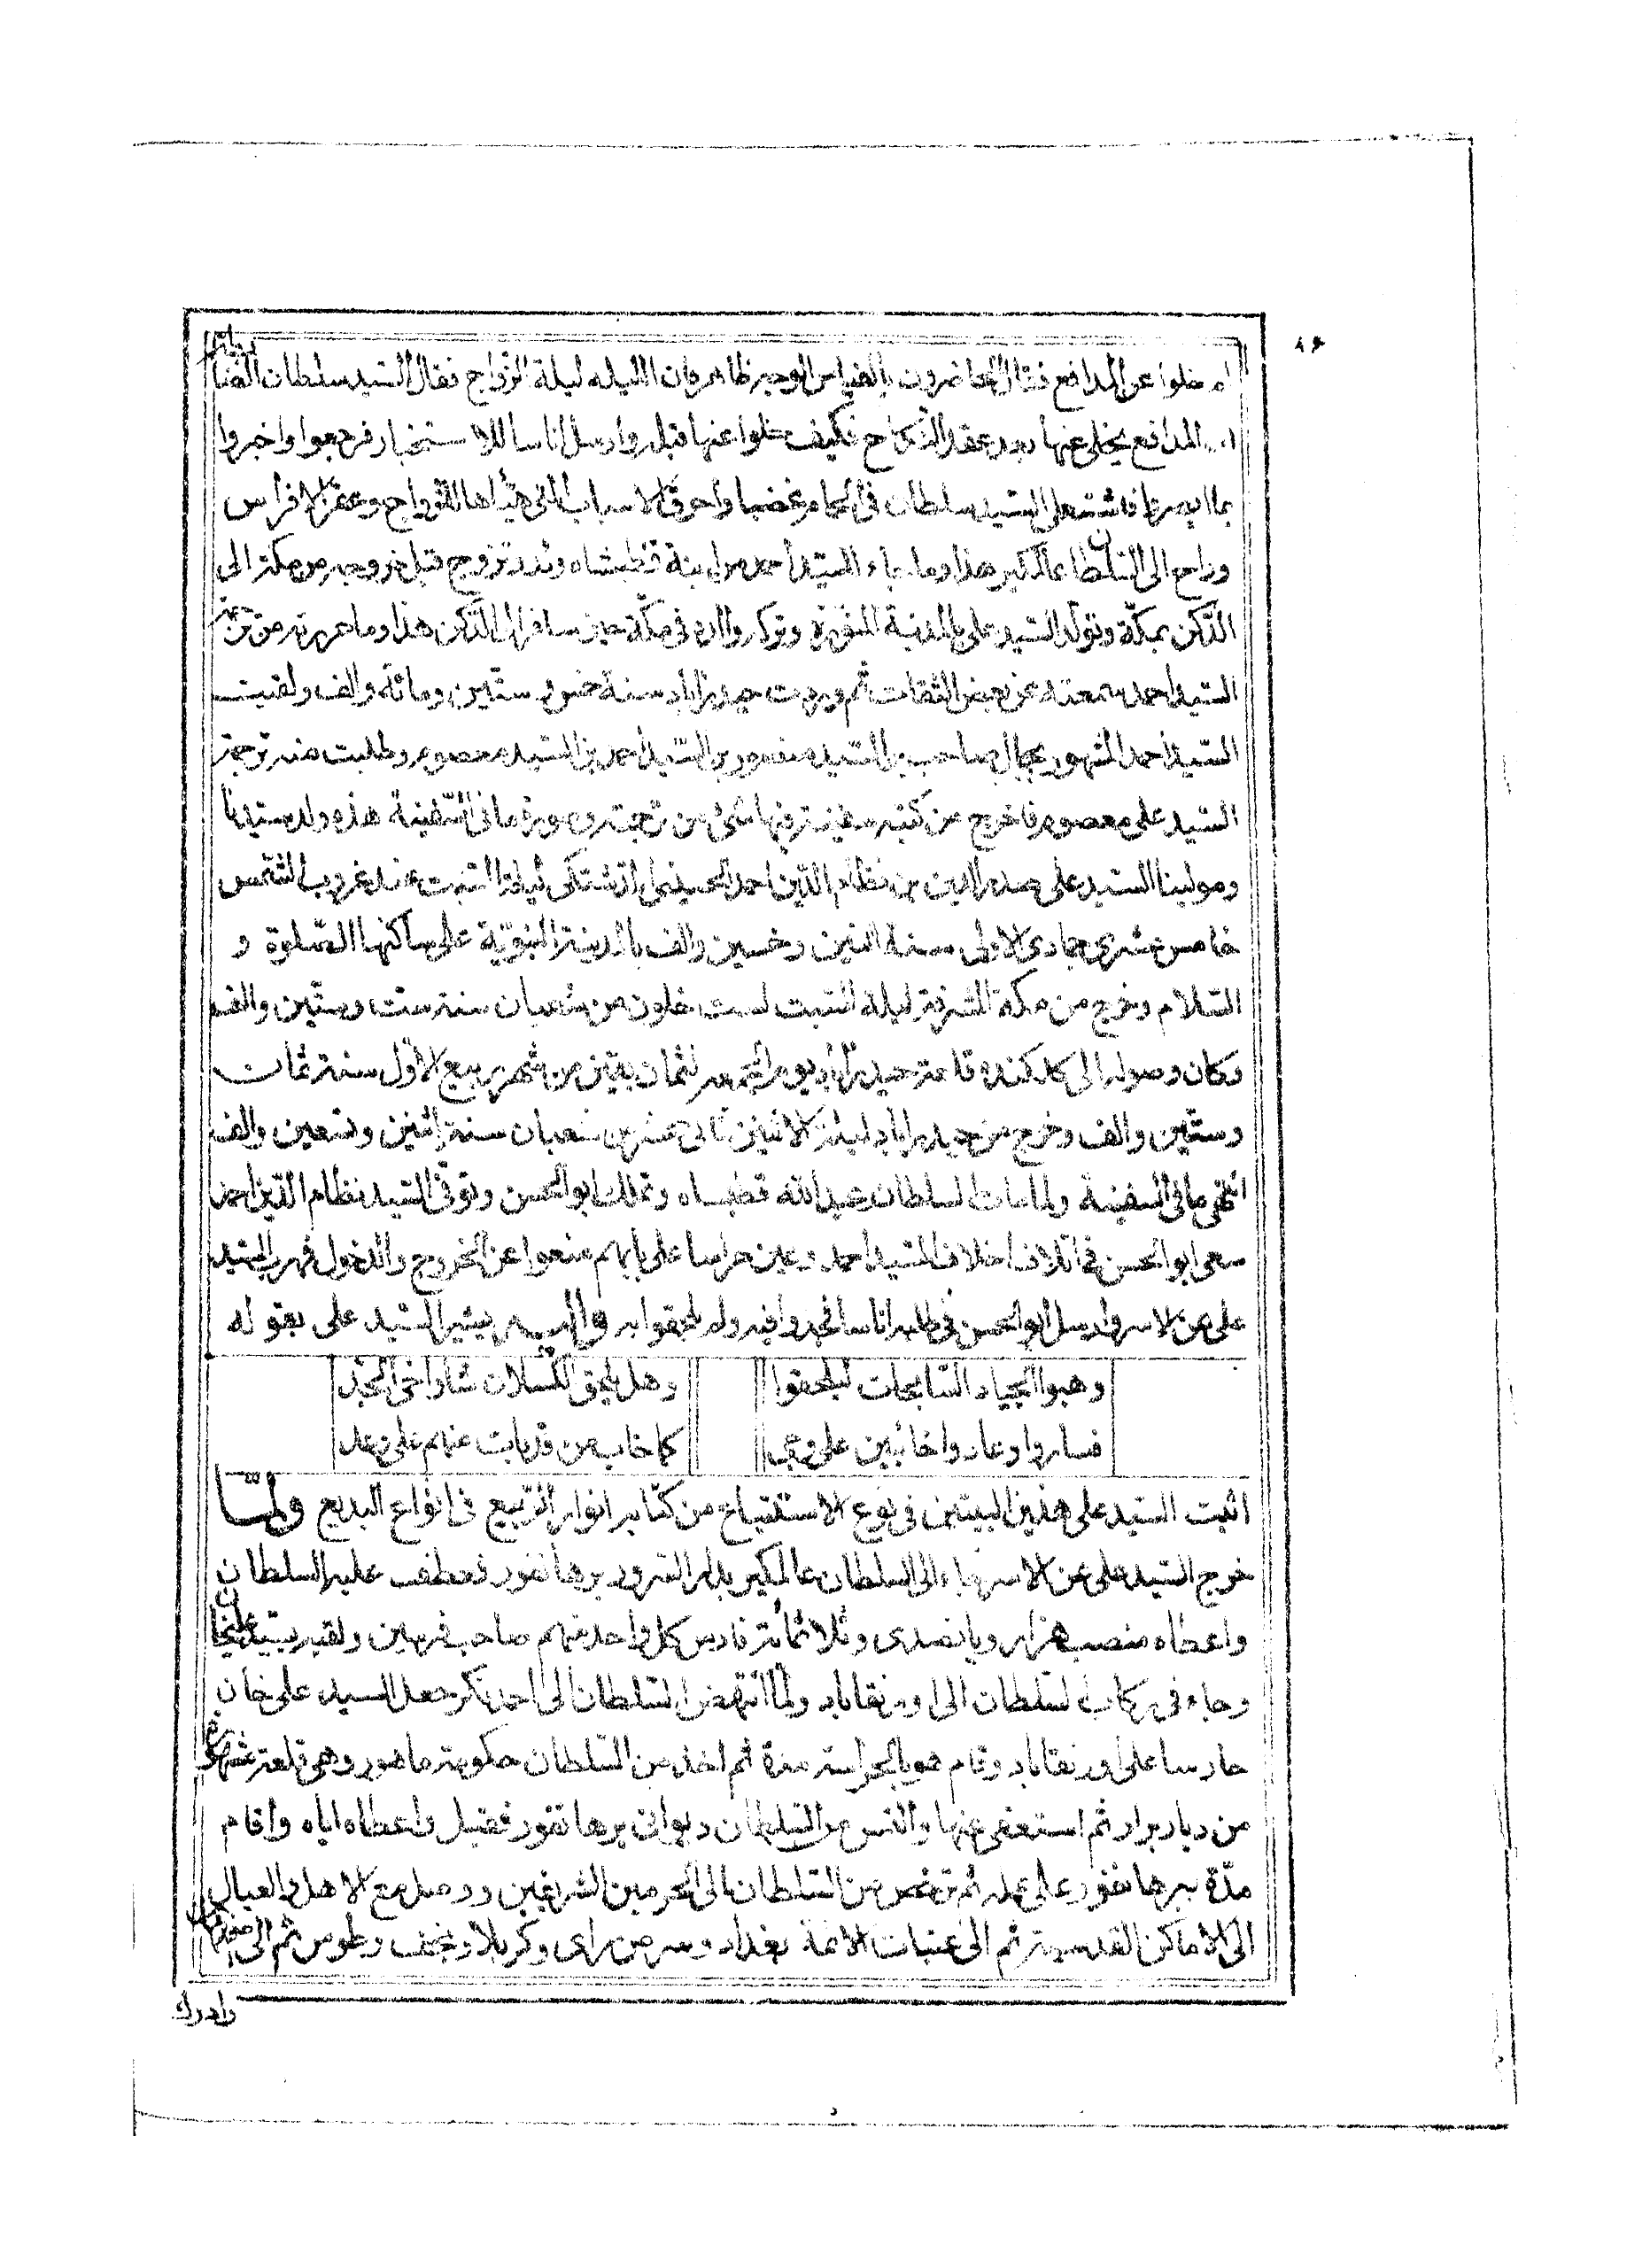 ٨٦
لم خلوا عن المدافع فقال الحاضرون بالقياس الوجه ظاهر فان الليله ليلة الزواج فقال السيد سلطان الضابطة
ان المدافع يخلى عنها بعد عقد النكاح فكيف خلوا عنها قبل وارسل اناسا للاستخبار فرجعوا واخبروا
بما ابصروا فاشتعل السيد سلطان فى الحمام غضبا واحرق الاسباب التى هيأها للزواج وعقر الافراس
وراح الى السلطان عالمكير هذا وما جاء السيد احمد من ابنة قطبشاه وقد تزوج قبل خروجه من مكة الى
الدكن بمكة وتولد السيد على بالمدينة المنورة وتركه والده فى مكة حين سافر الى الدكن هذا وما حررته من ترجمة
السيد احمد سمعته عن بعض الثقات ثم وردت حيدراباد سنة خمس وستين ومائة والف ولقيت
السيد احمد المشهور بجمال صاحب بن السيد منصور بن السيد احمد بن السيد معصوم وطلبت منه ترجمة
السيد على معصوم فاخرج من كتبه سفينة فيها شئ من ترجمته وصورة ما فى السفينة هذه ولد سيدنا
ومولينا السيد على صدر الدين بن نظام الدين احمد الحسينى ليلة السبت عند غروب الشمس
خامس عشرى جمادى الاولى سنة اثنين وخمسين والف بالمدينة النبوية على ساكنها الصلوة و
السلام وخرج من مكة المشرفة ليلة السبت لست خلون من شعبان سنة ست وستين والف
وكان وصوله الى كلكنده قلعة حيدراباد يوم الجمعه لثمان بقين من شهر ربيع الاول سنة ثمان
وستين والف وخرج من حيدراباد ليلة الاثنين ثانى عشر من شعبان سنة اثنين وتسعين والف
انتهى ما فى السفينة ولما مات السلطان عبد الله قطبشاه وتملك ابو الحسن وتوفى السيد نظام الدين احمد
سعى ابو الحسن فى اتلاف اخلاف السيد احمد وعين حراسا على بابهم منعوا عن الخروج والدخول فهرب السيد
على من الاسر وارسل ابو الحسن فى طلبه اناسا فجدوا فيه ولم يلحقوا به واليه يشير السيد على بقوله
وهبوا الجياد السابحات ليلحقوا وهل يلحق الكسلان شأو اخى المجد
فساروا وعادوا خائبين على وجى كما خاب من قد بات منهم على وعد
اثبت السيد على هذين البيتين فى نوع الاستتباع من كتابه انوار الربيع فى انواع البديع ولما
خرج السيد على من الاسر جاء الى السلطان عالمكير بدار السرور برهانفور فعطف عليه السلطان
واعطاه منصب هزار وپانصدى وثلاثمائة فارس كل واحد منهم صاحب فرسين ولقبه بسيد عليخان
وجاء فى ركاب السلطان الى اورنقاباد ولما انتهض السلطان الى احمدنكر جعل السيد على خان
حارسا على اورنقاباد وقام هو بالحراسة مدة ثم اخذ من السلطان حكومة ماهور وهى قلعة مشهورة
من ديار برار ثم استعفى عنها والتمس من السلطان ديوانى برهانفور فقبل واعطاه اياه واقام
مدة ببرهانفور على عمله ثم ترخص من السلطان الى الحرمين الشريفين ووصل مع الاهل والعيال
الى الاماكن القدسية ثم الى عتبات الائمة بغداد وسر من راى وكربلا ونجف وطوس ثم الى صفهان
وادرك